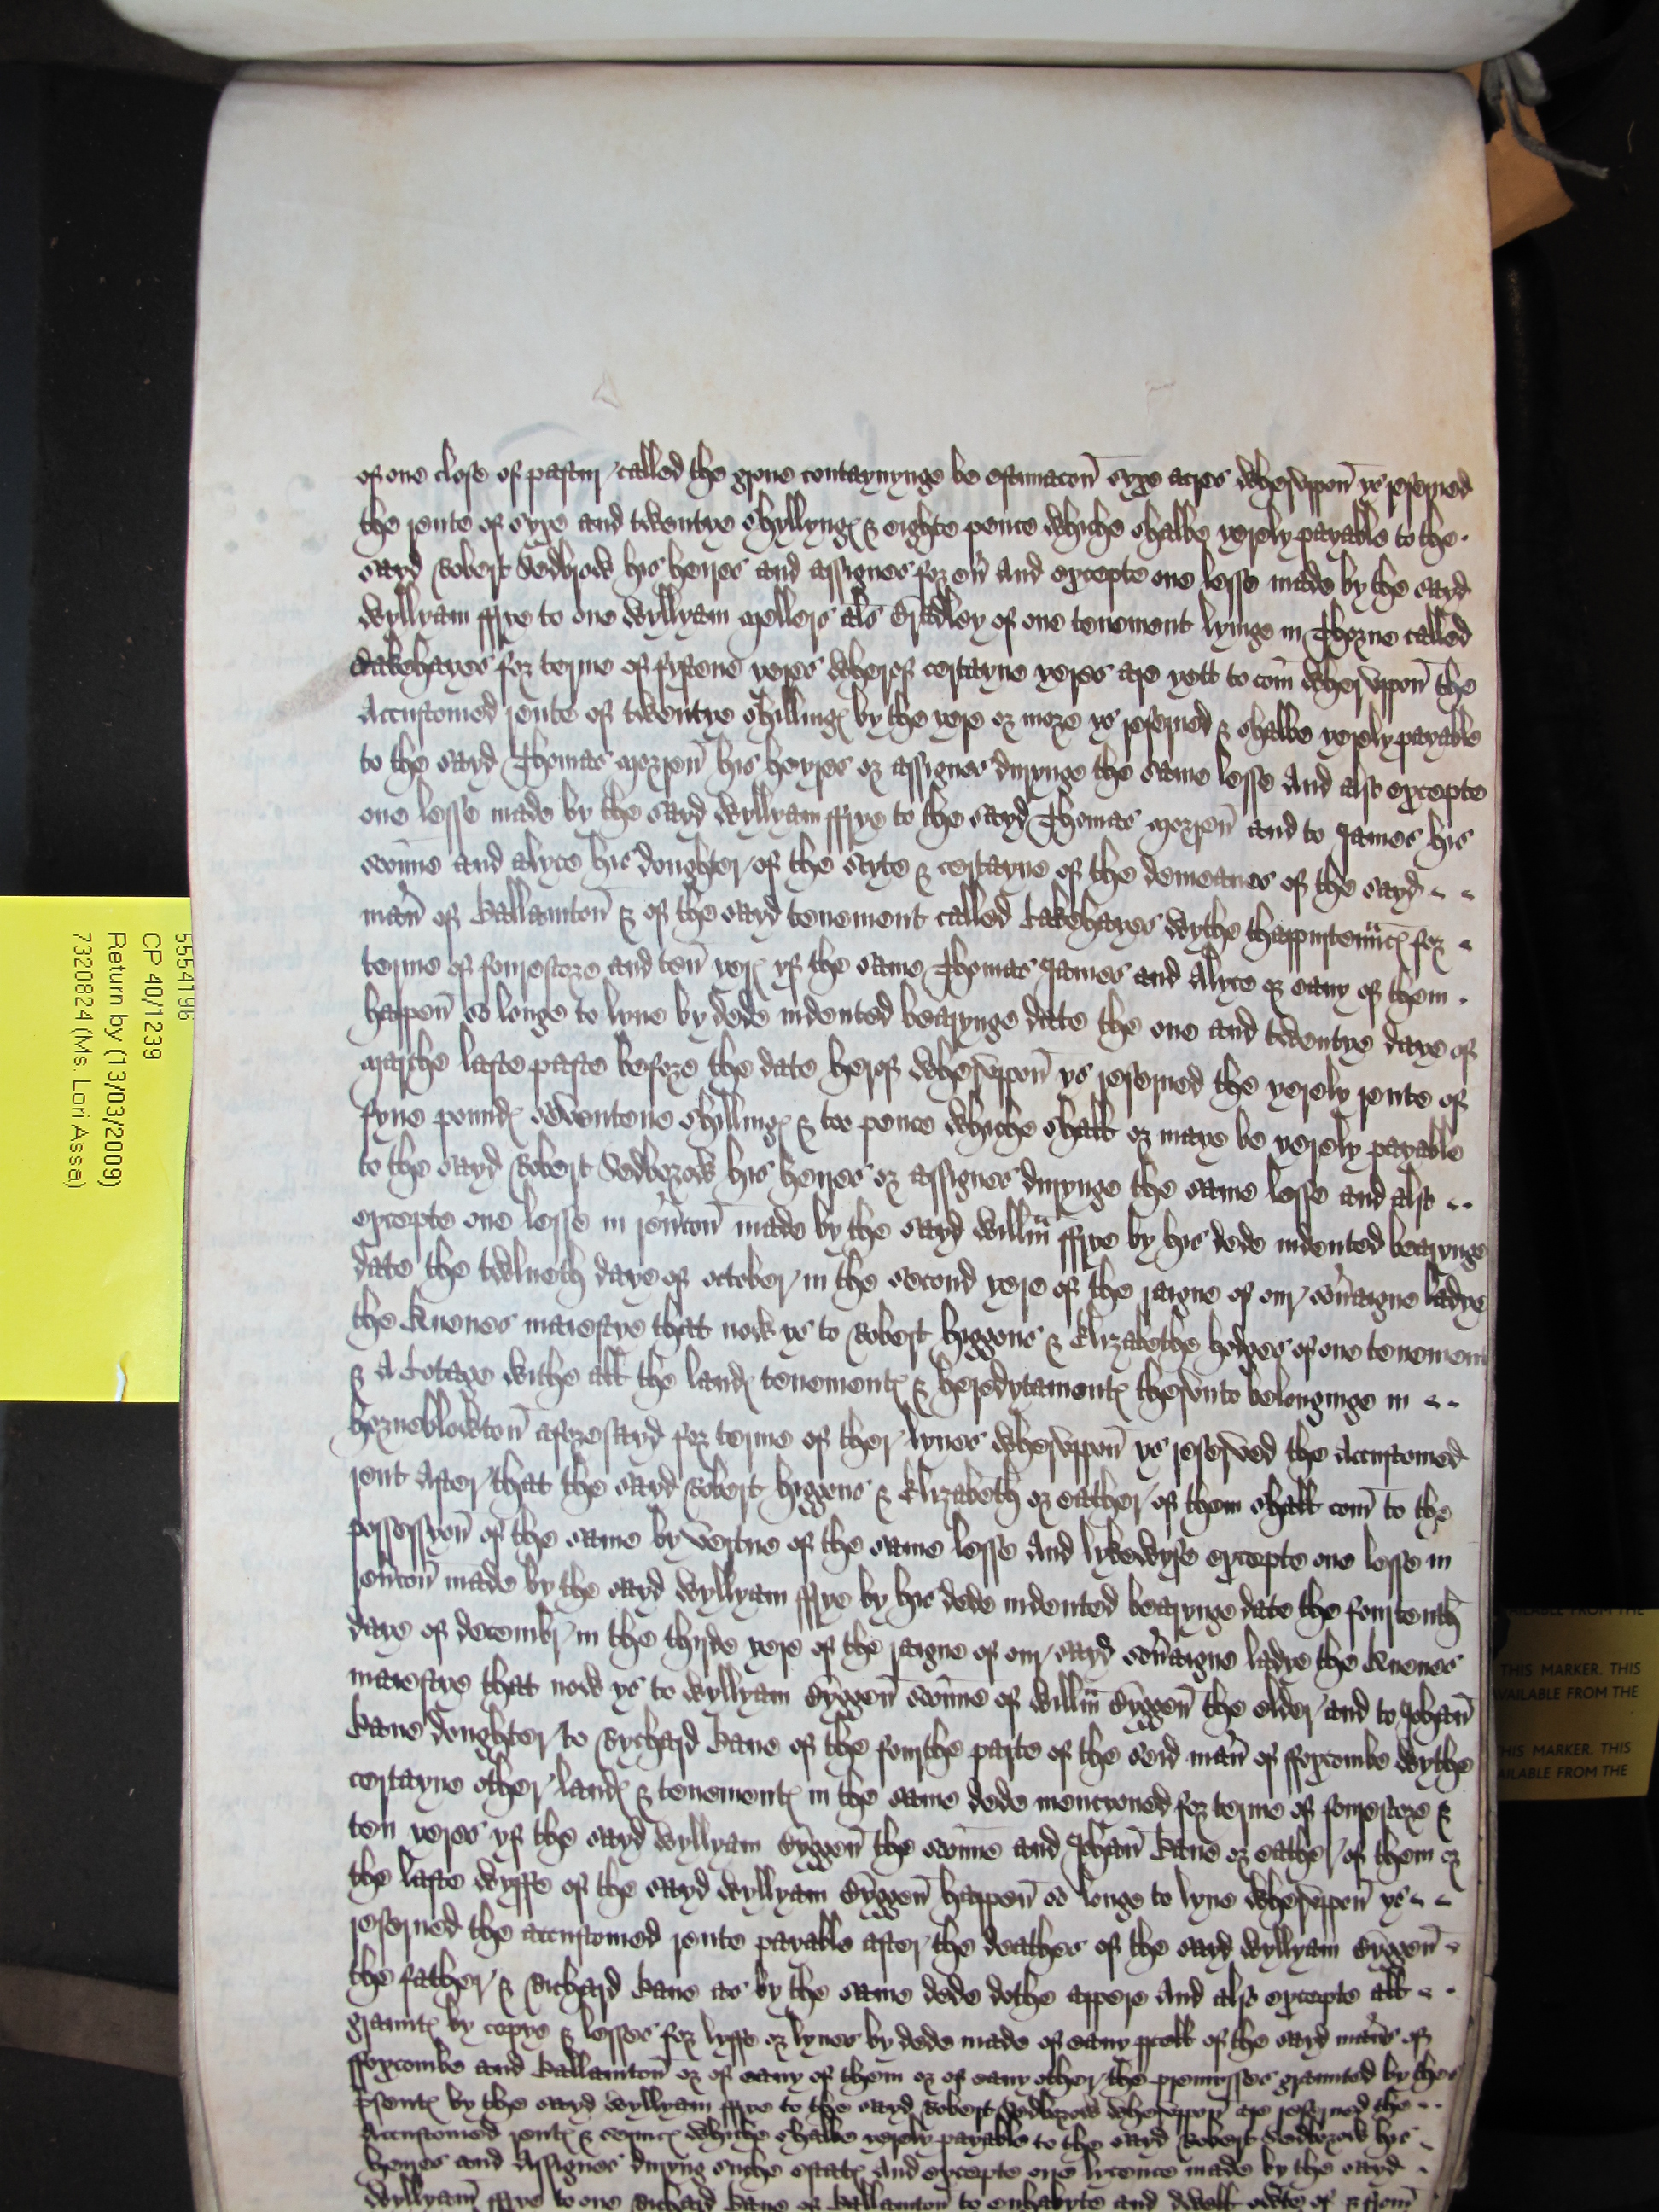 of one close of pastur called the grove contaynynge be estimacon syxe acres wheruppon ys reserved
the rente of syxe and twentye shyllyngs & eighte pence whiche shalbe yerely payable to the
sayd Robert Sedborow his heires and assignes for ev' And excepte one lesse made by the sayd
wyllyam ffrye to one wyllyam mollers als Bradley of one tenement lyinge in Thorne called
for terme of fyftene yeres wherof certayne yeres are yett to com wheruppon the
Accustomed rente of twentye shillings by the yere or more ys reserved & shalbe yerely payable
to the sayd Thomas his heyres or assignes durynge the same lesse And also excepte
one lesse made by the sayd wyllyam ffrye to the sayd Thomas and to James his
sonne and alyce his doughter of the scyte & certayne of the demeanes of the sayd
man' of Kallamton & of the sayd tenement called wythe thappurtenncs for
terme of fourescore and ten yers yf the same Thomas James and Alyce or eany of them
happen so longe to lyve by dede indented bearynge date the one and twentye daye of
marche laste paste before the date herof wheruppon ys reserved the yerely rente of
fyve pounds seventene shillings & too pence whiche shall or maye be yerely payable
to the sayd Robert Sedborow his heires or assignes durynge the same lesse and also
excepte one lesse in rev'con made by the sayd willm ffrye by his dede indented bearynge
date the twelueth daye of october in the second yere of the raigne of our sov'aigne ladye
the Quenes maiestye that now ys to Robert higgens & Elizabethe hodges of one tenement
& A Cotage withe all the lands tenements & heredytaments therunto belonginge in
horneblowton aforesayd for terme of ther lyves wheruppon ys reserved the Accustomed
rent After that the sayd Robert higgens & Elizabeth or eather of them shall com to the
possessyon of the same by vertue of the same lesse And lykewyse excepte one lesse in
rev'con made by the sayd wyllyam ffrye by his dede indented bearynge date the fourtenth
daye of decembr in the thirde yere of the raigne of our sayd sov'aigne ladye the Quenes
maiestye that now ys to wyllyam Byggen sonne of willm Byggen the elder and to Johan
Kane doughter to Rychard Kane of the fourthe parte of the seid man' of ffoxcombe wythe
certayne other lands & tenements in the same dede mencyoned for terme of fourescore &
ten yeres yf the sayd wyllyam Byggen the sonne and Johan Kane or eather of them or
the laste wyffe of the sayd wyllyam Byggen happen so longe to lyve wheruppon ys
reserved the accustomed rente payable after the deathes of the sayd wyllyam Byggen
the father & Richard Kane as by the same dede dothe appere And also excepte all
graunts by copye & lesses for lyffe or lyves by dede made of eany pcell of the sayd man's of
ffoxcombe and Kallamton or of eany of them or of eany other the premysses graunted by thes
psents by the sayd wyllyam ffrye to the sayd Robert Sedborow wheruppon are reserved the
Accustomed rents & servics whiche shalbe yerely payable to the sayd Robert Sedborow his
heires and Assignes duryng suche estats And excepte one lycence made by the sayd
wyllyam ffrye to one Richard Kane of Kallamton to enhabyte and dwell owte of & from
5554196
CP 40/1239
Return by (13/03/2009)
7320824 (Ms. Lori Asse)
AILABLE FROM THE
THIS MARKER. THIS
VAILABLE FROM THE
HIS MARKER. THIS
AILABLE FROM THE